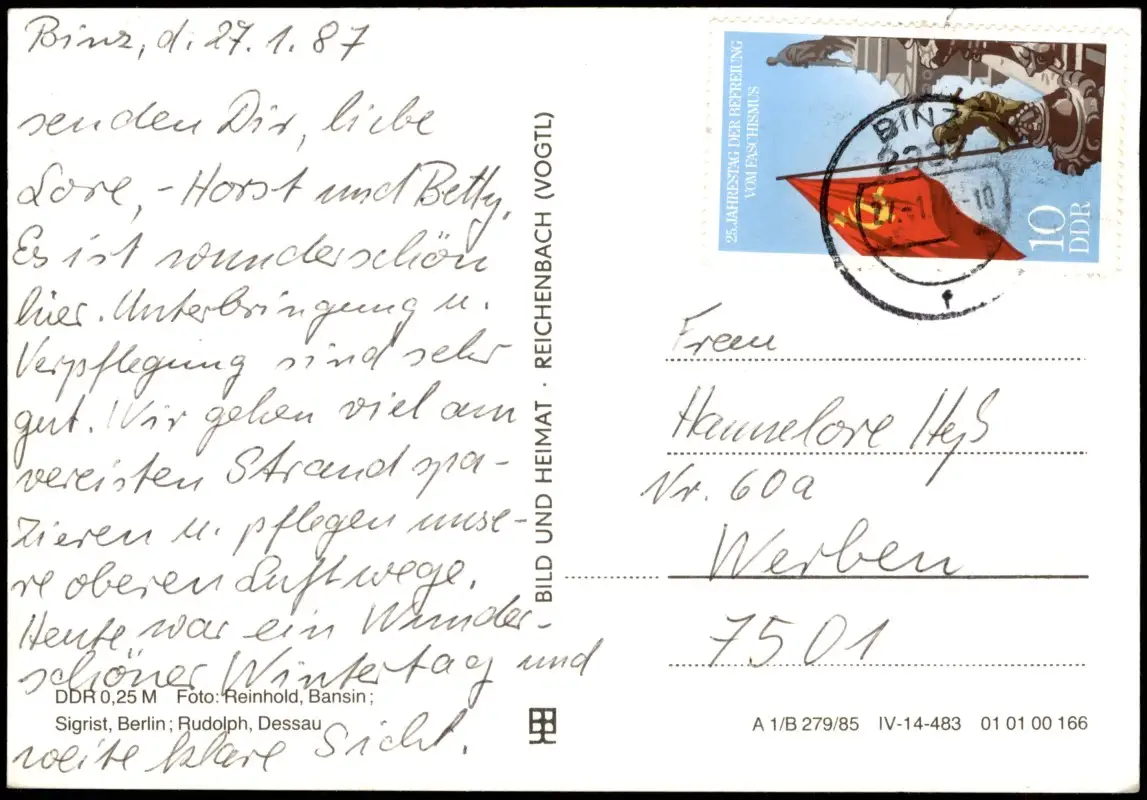 Binz, d. 27.1.87
senden Dir, liebe
Lore, - Horst und Betty.
Es ist wunderschön
hier. Unterbringung u.
Verpflegung sind sehr
gut. Wir gehen viel am
vereisten Strand spa-
zieren u. pflegen unse-
re oberen Luftwege.
Heute war ein Wunder-
schöner Wintertag und
weite klare Sicht.
DDR 0,25 M Foto: Reinhold, Bansin;
Sigrist, Berlin; Rudolph, Dessau
BILD UND HEIMAT · REICHENBACH (VOGTL)
25. JAHRESTAG DER BEFREIUNG
VOM FASCHISMUS
10
DDR
BINZ
Frau
Hannelore
Nr. 60a
Werben
7501
A 1/B 279/85 IV-14-483 01 01 00 166